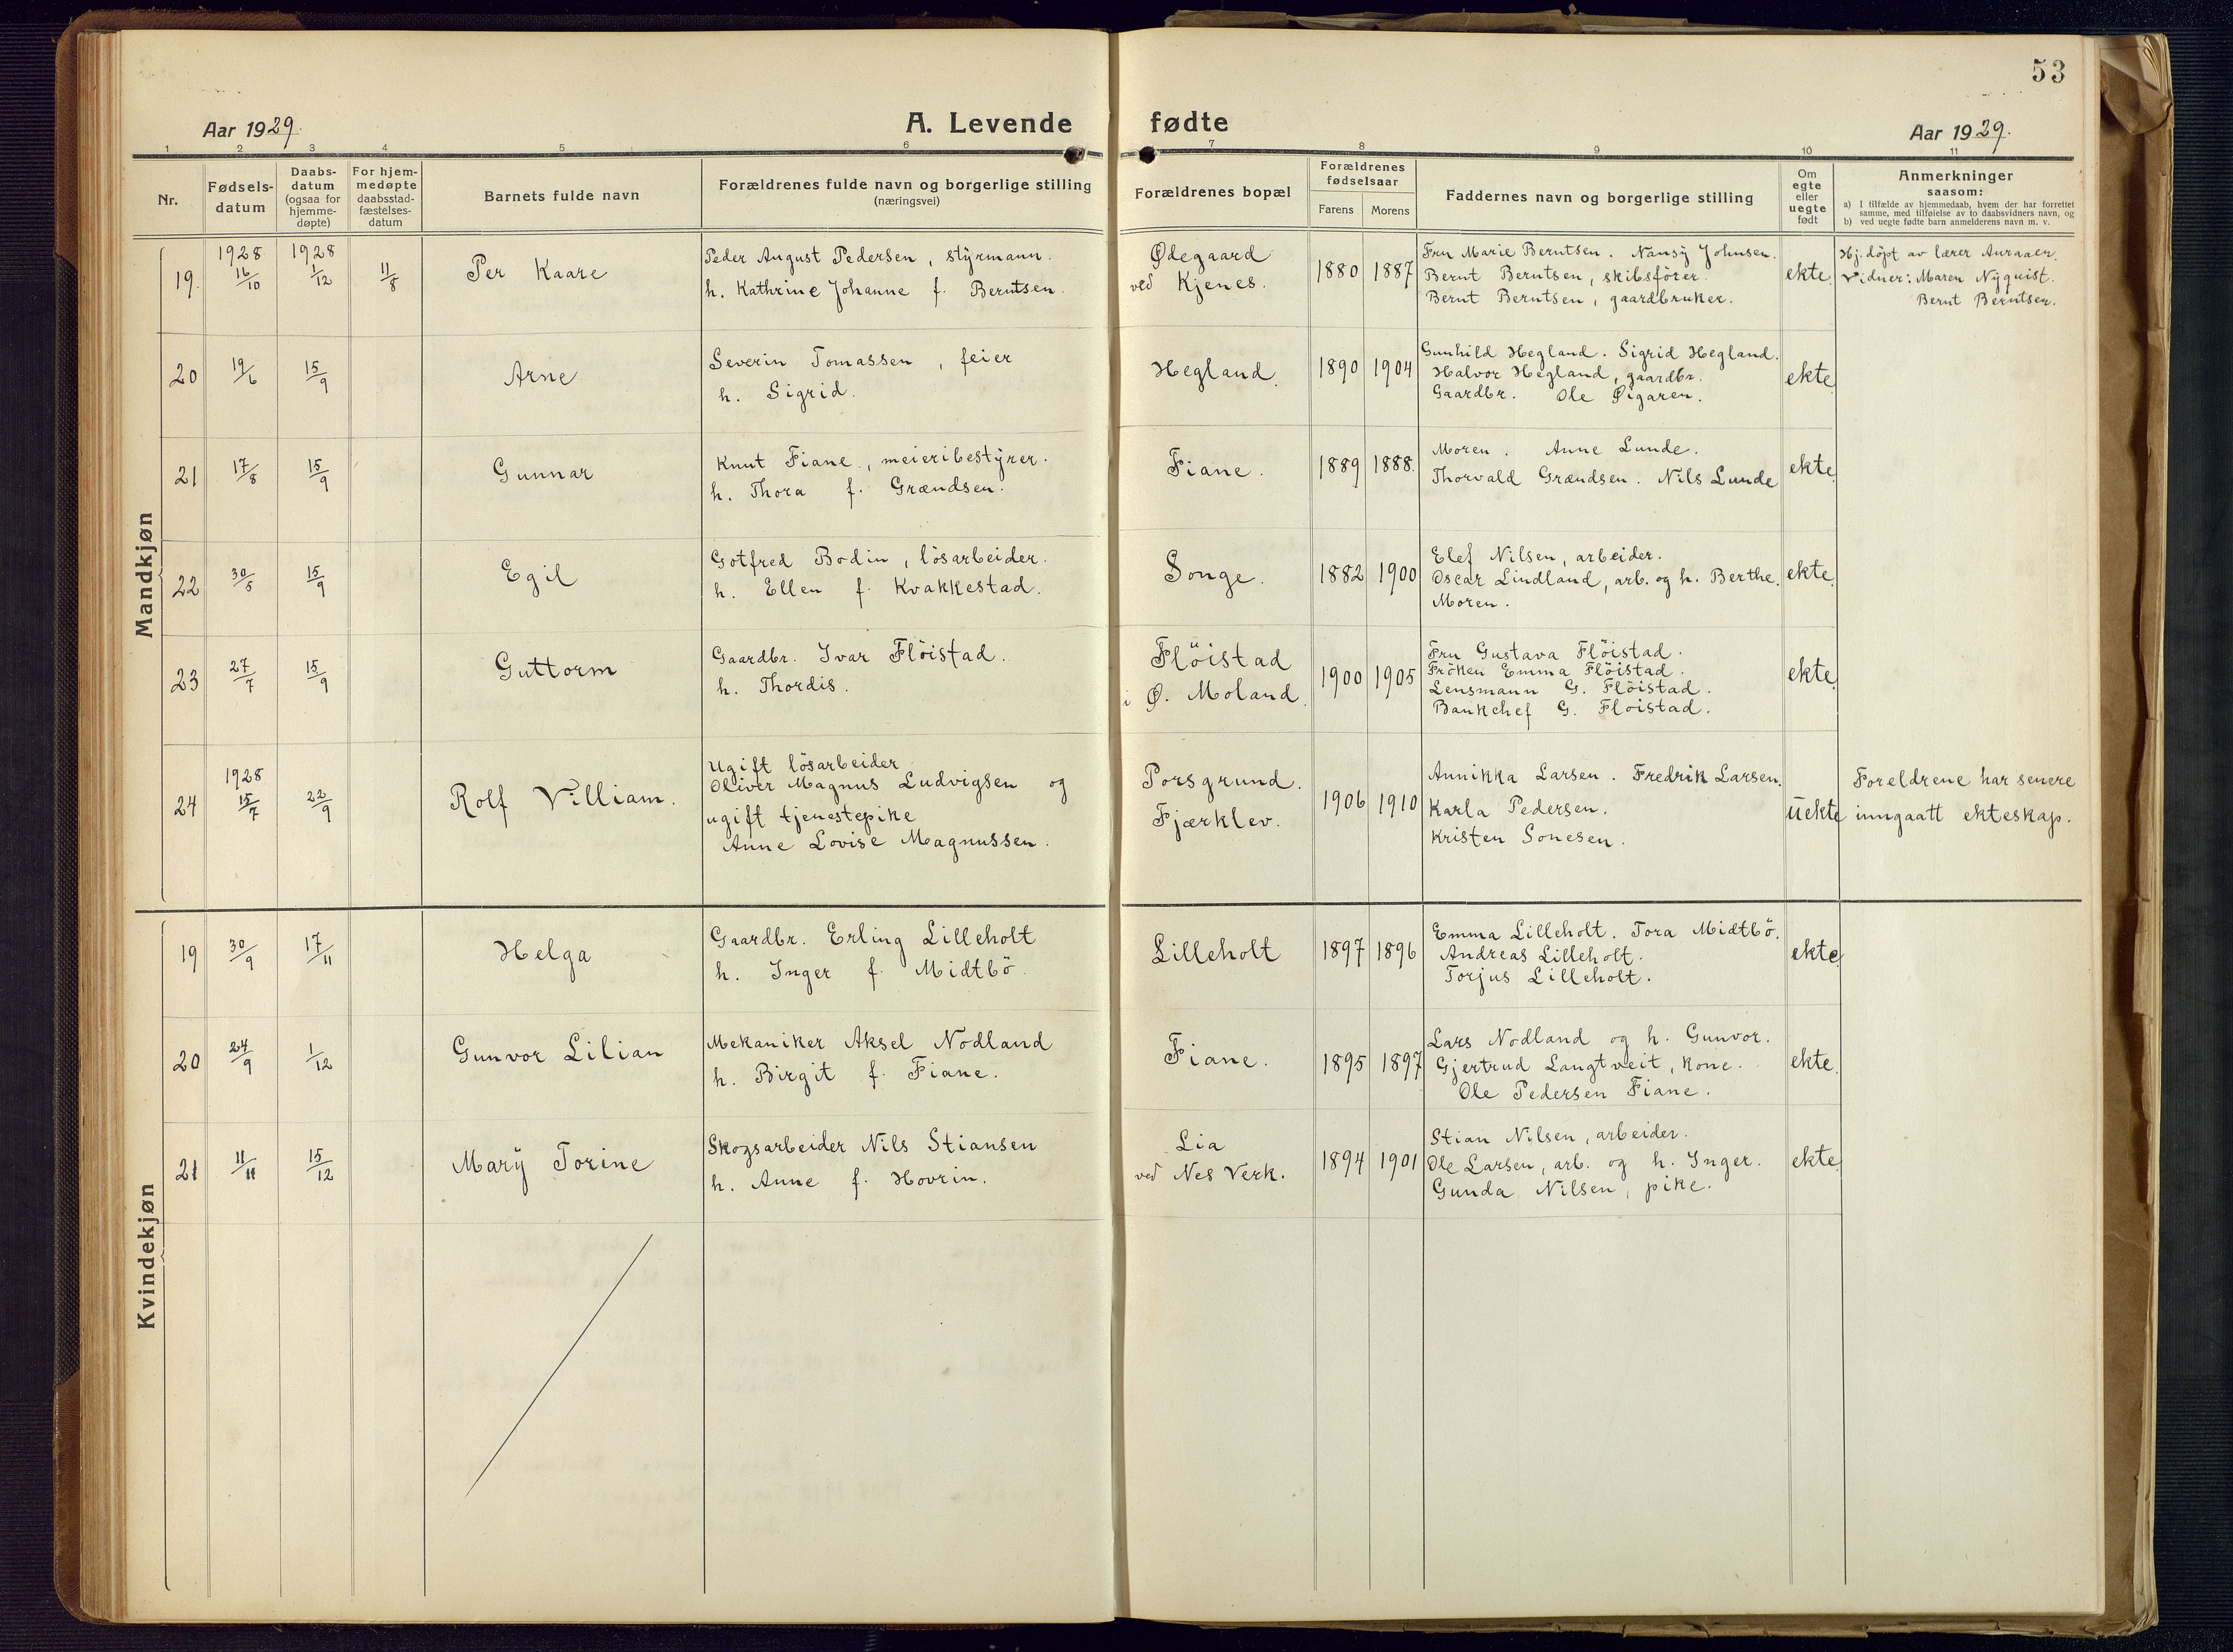 53
Aar 1929.
A. Levende fødte
Aar 1929.
1 2 3 4 5 6 7 8 9 10 11
Nr.
Fødsels-
datum
Daabs-
datum
(ogsaa for
hjemme-
døpte)
For hjem-
medøpte
daabsstad-
fæstelses-
datum
Barnets fulde navn
Forældrenes fulde navn og borgerlige stilling
(næringsvei)
Forældrenes bopæl
Forældrenes
fødselsaar
Farens Morens
Faddernes navn og borgerlige stilling
Om
egte
eller
uegte
født
Anmerkninger
saasom:
a) I tilfælde av hjemmedaab, hvem der har forrettet
samme, med tilføielse av to daabsvidners navn, og
b) ved uegte fødte barn anmelderens navn m. v.
Mandkjøn
19.
1928
16/10
1928
1/12
11/8
Per Kaare
Peder August Pedersen, styrmann.
h. Kathrine Johanne f. Berntsen.
Ødegaard
ved Kjenes.
1880 1887
Fru Marie Berntsen. Nansy Johnsen.
Bernt Berntsen, skibsförer.
Bernt Berntsen, gaardbruker.
ekte.
Hj. döpt av lærer Auraaen.
Vidner: Maren Nyquist.
Bernt Berntsen.
20
19/6
15/9
Arne
Severin Tomassen, feier
h. Sigrid.
Hegland.
1890 1904
Gunhild Hegland. Sigrid Hegland.
Halvor Hegland, gaardbr.
Gaardbr. Ole Øigaren.
ekte
21
17/8
15/9
Gunnar
Knut Fiane, meieribestyrer.
h. Thora f. Grændsen.
Fiane.
1889 1888.
Moren. Anne Lunde.
Thorvald Grændsen. Nils Lunde
ekte
22
30/5
15/9
Egil
Gotfred Bodin, lösarbeider.
h. Ellen f. Kvakkestad.
Songe.
1882 1900
Elef Nilsen, arbeider.
Oscar Lindland, arb. og h. Berthe.
Moren.
ekte.
23
27/7
15/9
Guttorm
Gaardbr. Ivar Flöistad.
h. Thordis.
Flöistad
i Ø. Moland.
1900 1905
Fru Gustava Flöistad.
Fröken Emma Flöistad.
Lensmann G. Flöistad.
Bankchef G. Flöistad.
ekte.
24
1928
15/7
22/9
Rolf Villiam.
Ugift lösarbeider
Oliver Magnus Ludvigsen og
ugift tjenestepike
Anne Lovise Magnussen.
Porsgrund.
Fjærklev.
1906 1910
Annikka Larsen. Fredrik Larsen.
Karla Pedersen.
Kristen Sonesen.
uekte
Foreldrene har senere
inngaatt ekteskap.
Kvindekjøn
19
30/9
17/11
Helga
Gaardbr. Erling Lilleholt
h. Inger f. Midtbö.
Lilleholt
1897 1896
Emma Lilleholt. Tora Midtbö.
Andreas Lilleholt.
Torjus Lilleholt.
ekte.
20
24/9
1/12
Gunvor Lilian
Mekaniker Aksel Nodland
h. Birgit f. Fiane.
Fiane.
1895 1897
Lars Nodland og h. Gunvor.
Gjertrud Langtveit, kone.
Ole Pedersen Fiane.
ekte.
21
11/11
15/12
Mary Torine
Skogsarbeider Nils Stiansen
h. Anne f. Hovrin.
Lia
ved Nes Verk.
1894 1901
Stian Nilsen, arbeider.
Ole Larsen, arb. og h. Inger.
Gunda Nilsen, pike.
ekte